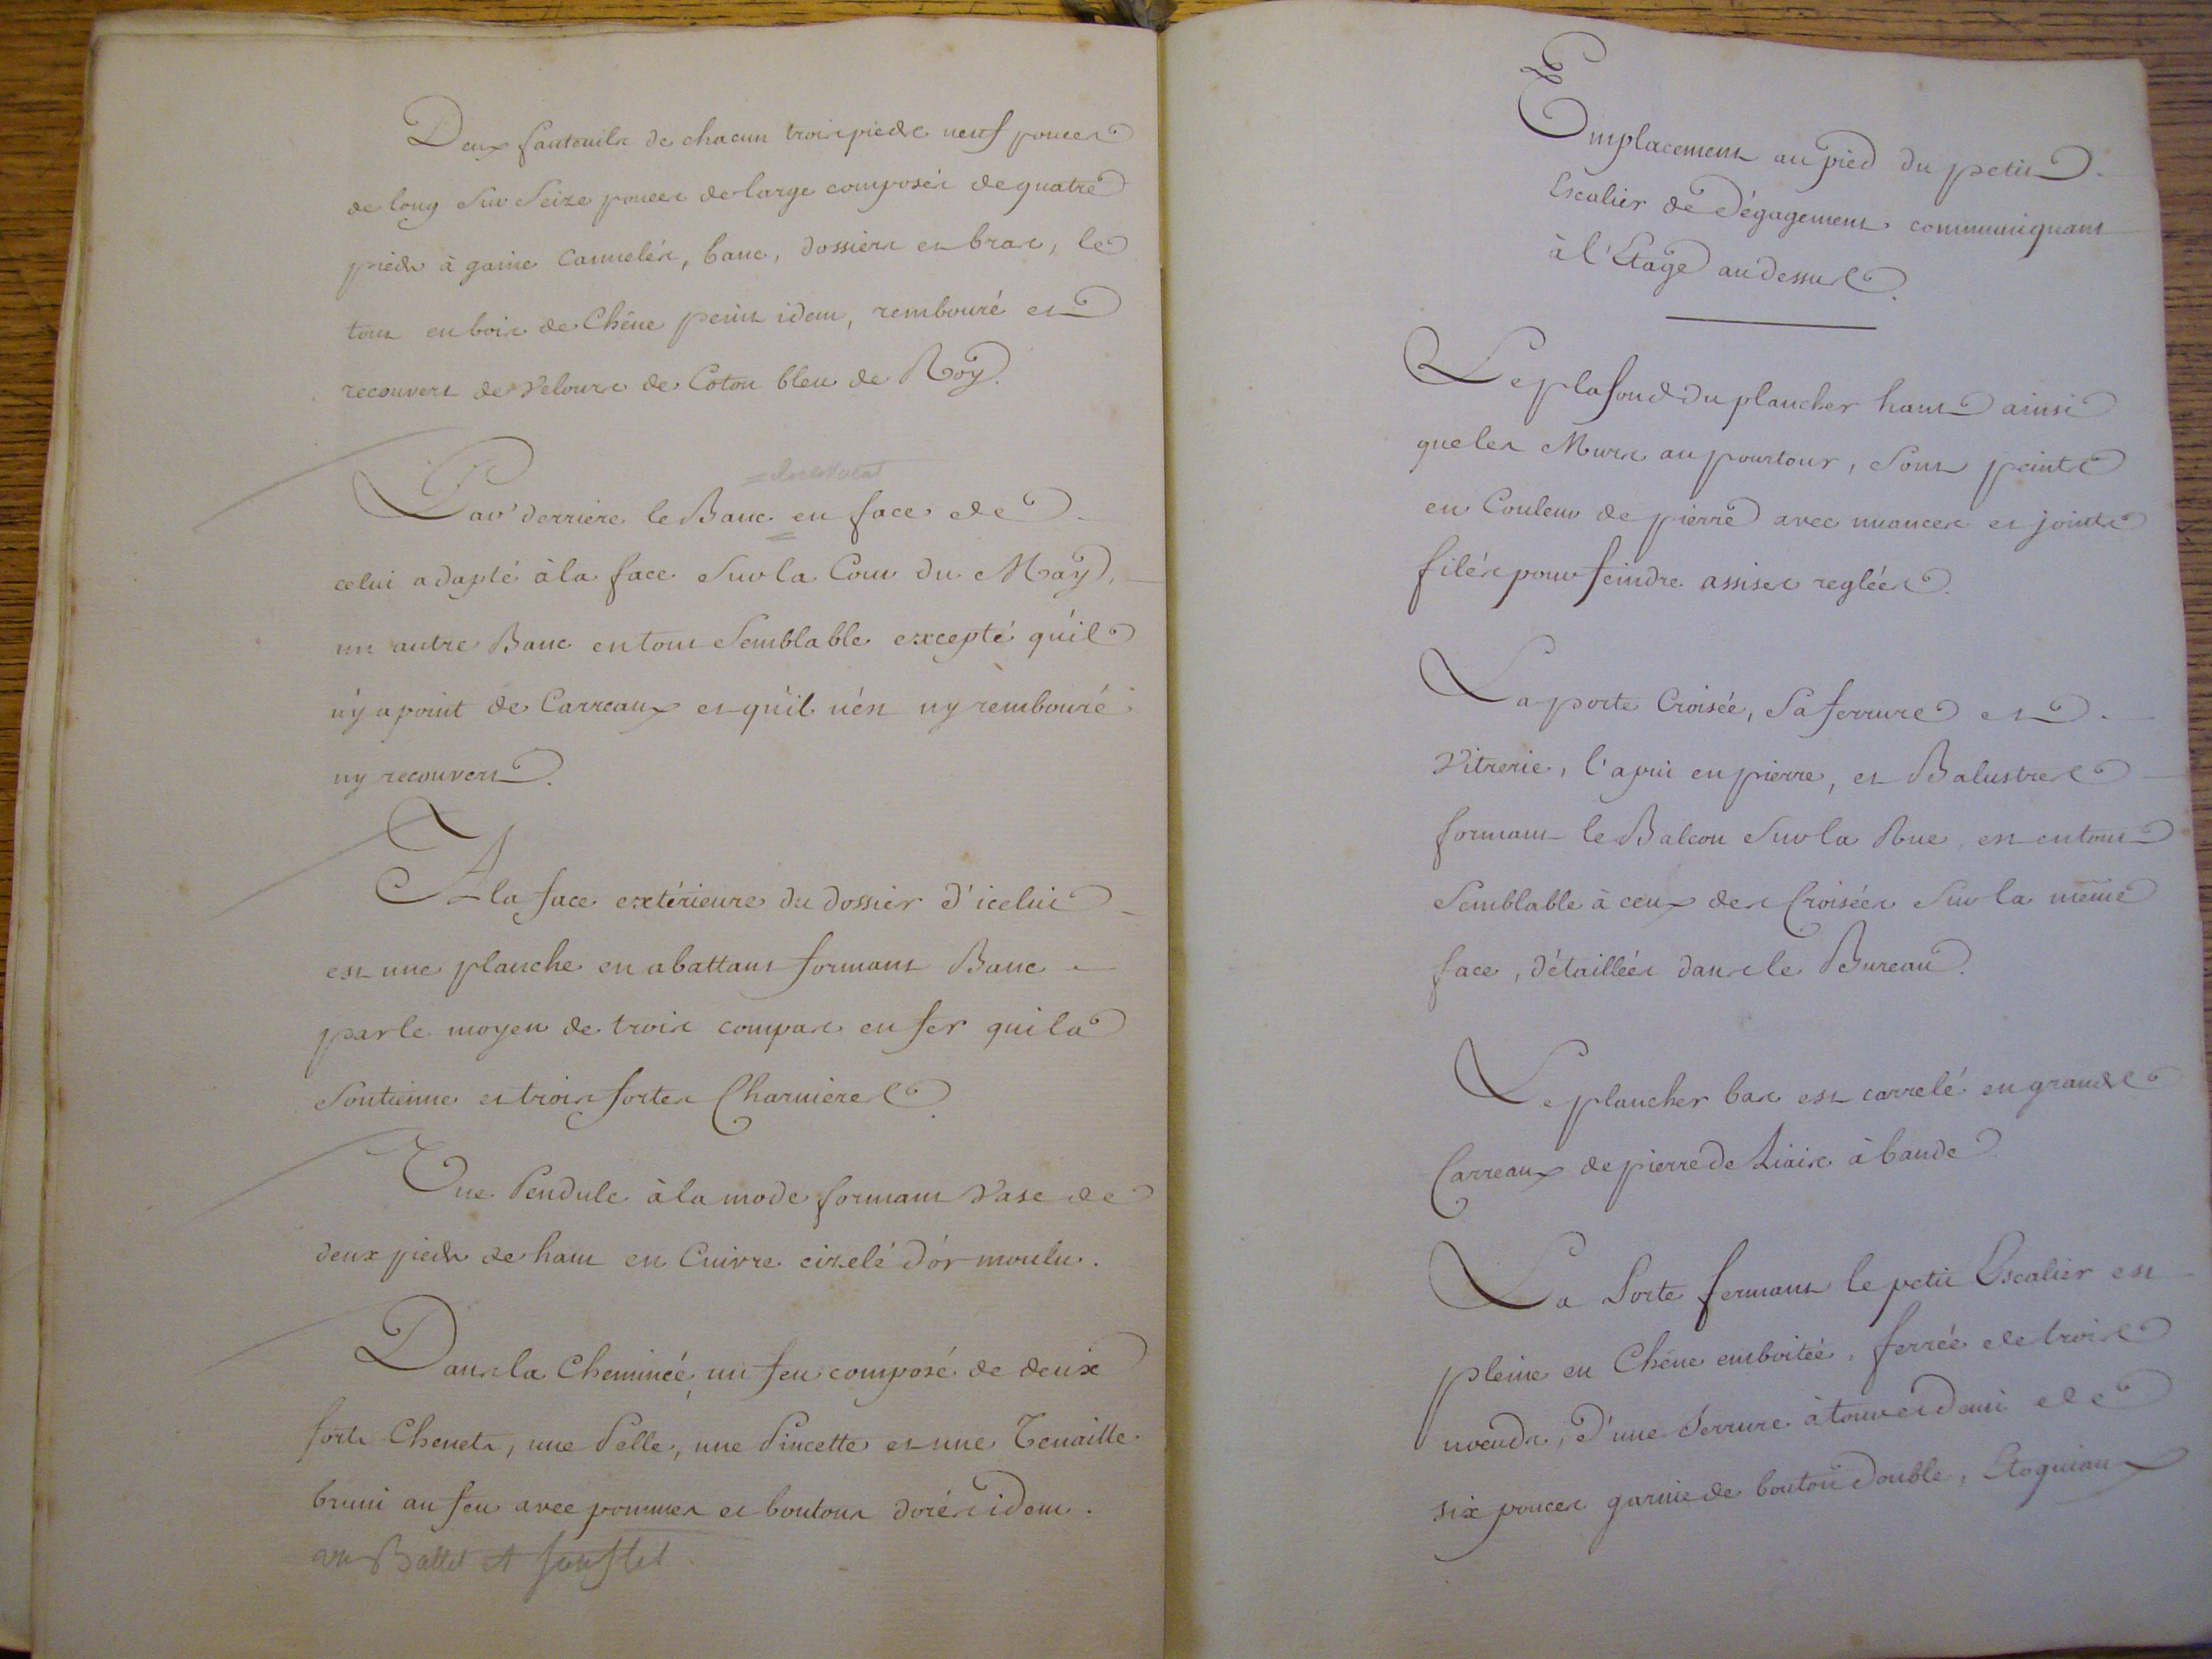 Deux fauteuils de chacun trois pieds neuf pouces
de long Sur Seize pouces de large composés de quatre
pieds à gaine Cannelés, banc, dossiers et bras, le
tout en bois de Chêne peint idem, rembouré et
recouvert de Velours de Coton bleu de Roy.
Par derriere le Banc en face de
celui adapté à la face Sur la Cour du May,
un autre Banc en tout Semblable excepté qu'il
n'y a point de Carreaux et qu'il n'est ny rembouré
ny recouvert.
A la face extérieure du dossier d'icelui
est une planche en abattant formant Banc
par le moyen de trois compas en fer qui la
Soutienne et trois fortes Charnieres.
Une Pendule à la mode formant Vase de
deux pieds de haut en Cuivre cizelé d'or moulu.
Dans la Cheminée, un feu composé de deux
forts Chenets, une Pelle, une Pincette et une Tenaille
bruni au feu avec pommes et boutons dorés idem.
et soufflet
Emplacement au pied du petit
Escalier de Dégagement communiquant
à l'Etage au dessus.
Le plafond du plancher haut ainsi
que les Murs au pourtour, Sont peints
en Couleur de pierre avec nuances et joints
filés pour feindre assises reglées.
La porte Croisée, Sa ferrure et
Vitrerie, l'apui en pierre, et Balustres
formant le Balcon Sur la Rue, est en tout
Semblable à ceux des Croisées Sur la même
face, détaillées dans le Bureau.
Le plancher bas est carrelé en grands
Carreaux de pierre de Liais à bande
La Porte fermant le petit Escalier est
pleine en Chêne emboitée, ferrée de trois
nœuds, d'une Serrure à tour et demi de
six pouces garnie de bouton double, Etoquiaux